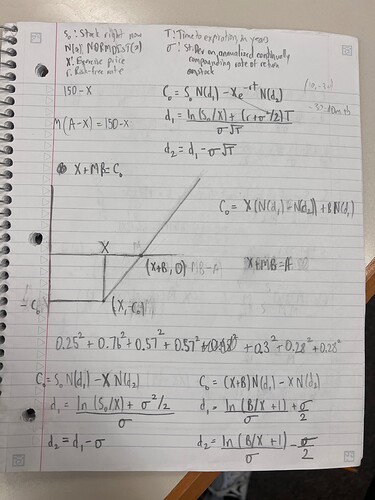 S₀: Stock right now
N(z): NORMDIST(z)
X: Exercise price
r: Risk-free rate
T: Time to expiration in years
σ: St. Dev on annualized continually
compounding rate of return
on stock
150-X
M(A-X)=150-X
C₀ = S₀ N(d₁) - Xe^-rT N(d₂)
d₁ = (ln(S₀/X) + (r+σ²/2)T) / (σ√T)
d₂ = d₁ - σ√T
X+MB=C₀
C₀ = X(N(d₁)-N(d₂))+BN(d₁)
X
(X+B, 0)
MB-A
X+MB=A
-C₀
(X,-C₀)
0.25²+0.76²+0.57²+0.57²+0.3²+0.28²+0.28²
C₀=S₀N(d₁)-XN(d₂)
d₁ = (ln(S₀/X) + σ²/2) / σ
d₂ = d₁ - σ
C₀ = (X+B)N(d₁)-XN(d₂)
d₁ = ln(B/X+1)/σ + σ/2
d₂ = ln(B/X+1)/σ - σ/2